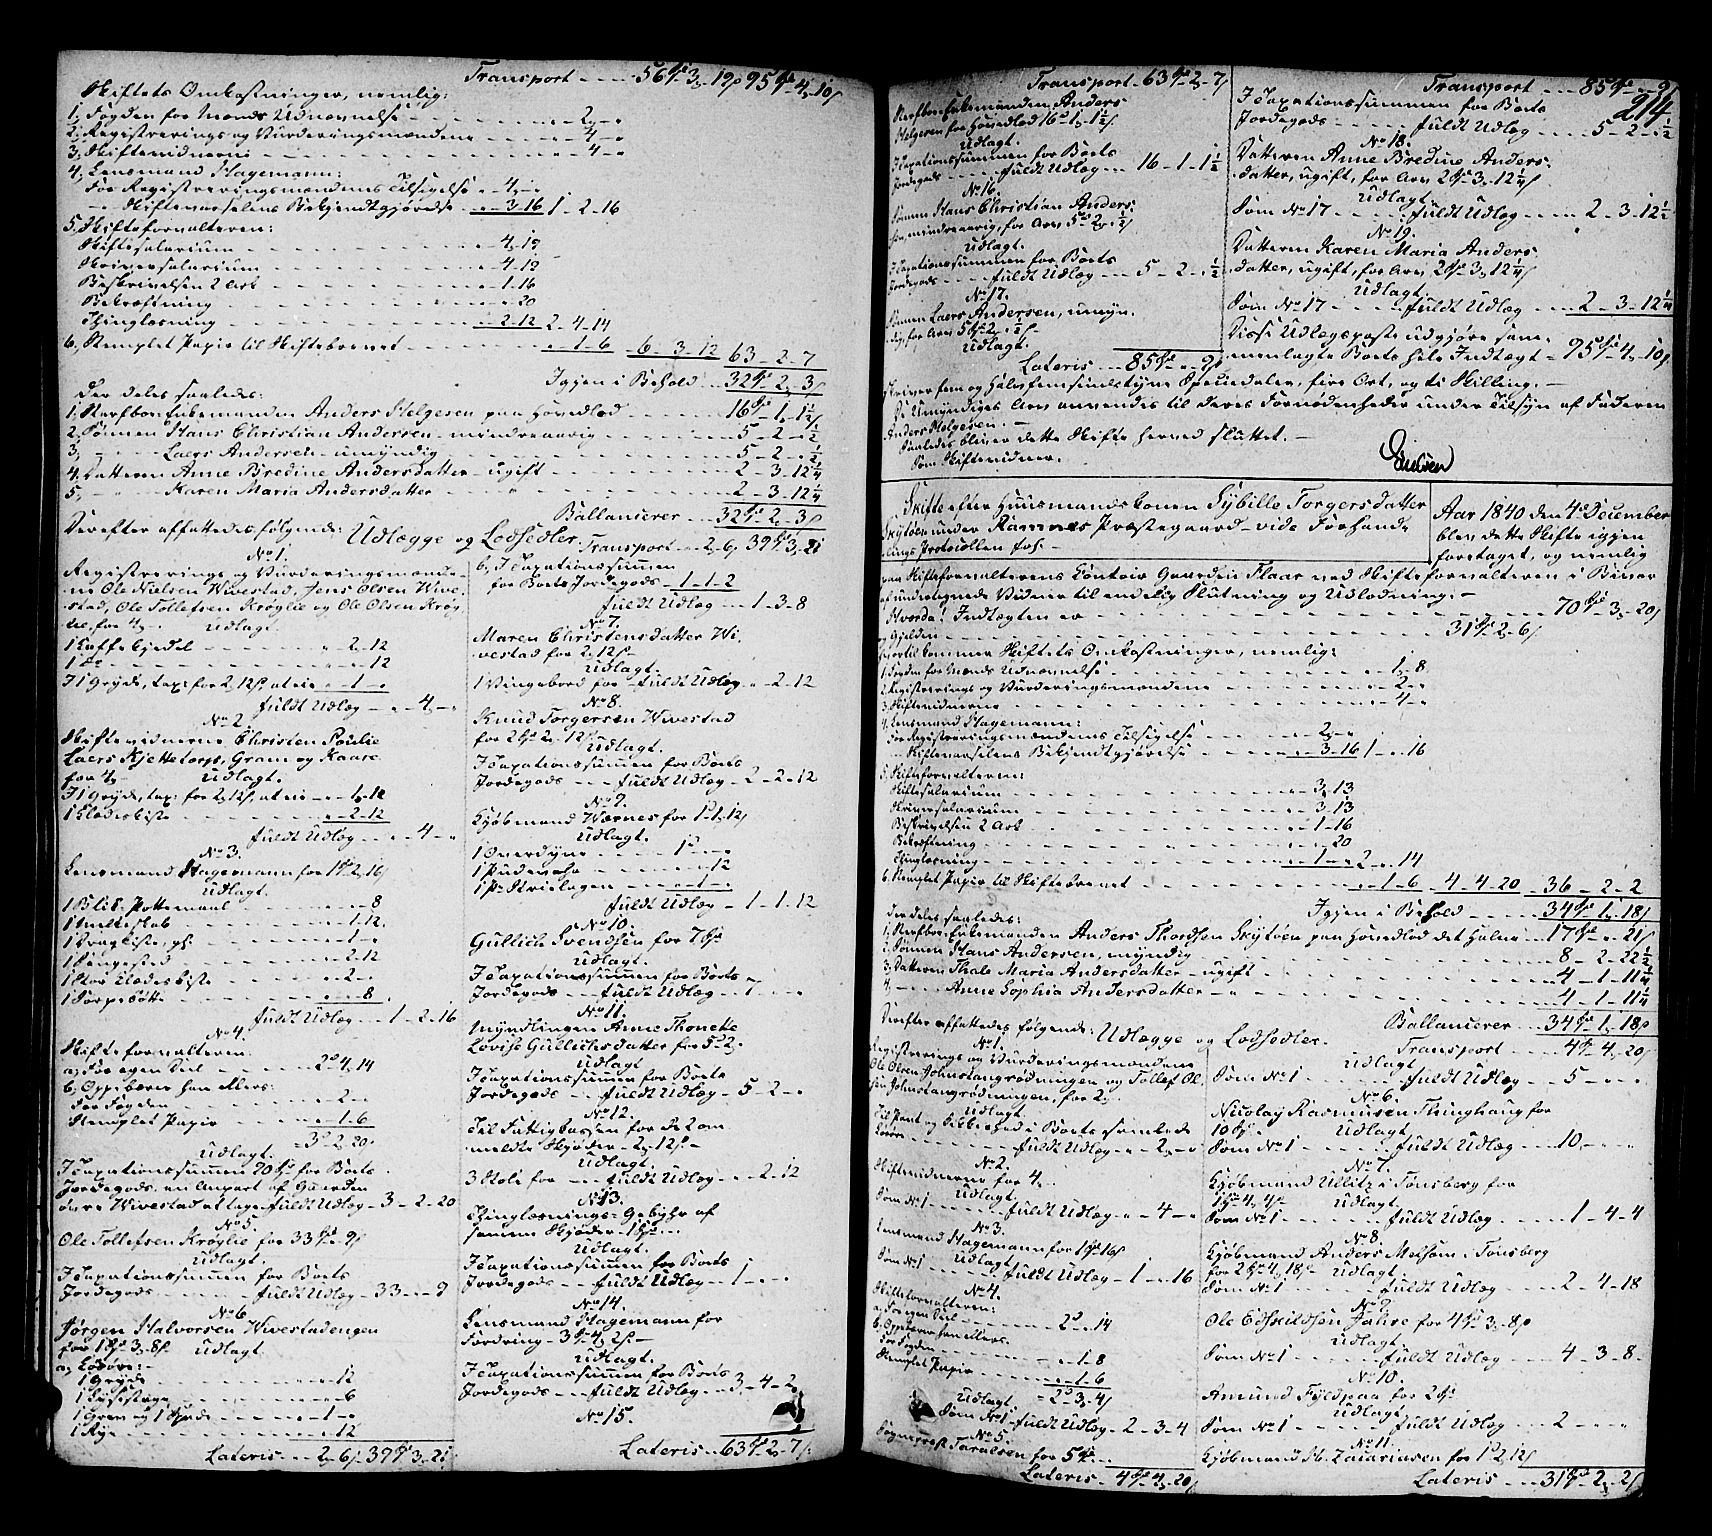 Transport - - - 56 3 19 95 4 10
Skiftets Omkostninger, nemlig:
1, Fogden for Mænds Udnævnelse - 2 -
2, Registrerings og Vurderingsmændene - 4 -
3, Skiftevidnerne - 4 -
4, Lensmand Hagemann:
For Registreringsmændenes Tilsigelse - 4 -
- Skiftevarselens Bekjendtgjørelse - 3 - 16 1 - 2 - 16
5, Skifteforvalteren:
Skiftesalarium - 4 - 19
Skriversalarium - 4 - 19
Beskrivelsen 2 Ark - 1 - 16
Bekræftning - 20
Thinglæsning - 2 - 12 2 - 4 - 14
6, Stemplet Papir til Skiftebrevet - 1 - 6 6 - 3 - 12 63 - 2 - 7
Igjen i Behold - 32 2 3
Der deles saaledes:
1, Arfboe Enkemanden Anders Helgesen paa Hovedlod - 16 1 1½
2, Sønnen Hans Christian Andersen - mindreaarig - 5 - 2 - ½
3, - Laers Andersen - umyndig - 5 - 2 - ½
4, Datteren Anne Bredine Andersdatter - ugift - 2 - 3 - 12¼
5, - Karen Maria Andersdatter - 2 - 3 - 12¼
Ballancerer - 32 2 3
Derefter affattedes følgende: Udlægge og Lodsedler.
No 1.
Registrerings og Vurderingsmændene
Ole Nielsen Wivestad, Jens Olsen Wive-
stad, Ole Tollefsen Krøglie og Ole Olsen Krøg-
lie, for 4
Udlagt.
1 Kaffekjedel - 2 - 12
1 do - 12
I 1 Gryde, tax: for 2 12 - 1 -
fuldt Udlæg - 4 -
No 2.
Skiftevidnerne Christen Poulie
Laers Kjettetorp, Gram og Kaare
for 4 Udlagt.
I 1 Gryde, tax: for 2 12 - 1 - 12
1 Klædekiste - 2 - 12
fuldt Udlæg - 4 -
No 3.
Lensmand Hagemann for 1 2 16
Udlagt.
fuldt Udlæg - 1 - 2 - 16
No 4.
Skifteforvalteren:
a, For egen Deel - 2 4 14
b, Oppebærer han ellers:
For Fogden - 2 -
Stemplet Papir - 1 - 6
3 2 20
Udlagt.
I Taxationssummen 90 for Boets
Jordegods, en Anpart af Gaarden
øvre Wivestad fuldt Udlæg - 3 - 2 - 20
No 5.
Ole Tollefsen Krøglie for 33 9
Udlagt.
I Taxationssummen for Boets
Jordegods - fuldt Udlæg - 33 - 9
No 6.
Jørgen Halvorsen Wivestadengen
for 1 3 8 Udlagt.
a, Løsøre:
1 Gryde - 12
1 Rye - 12
Lateris - 2 6 39 3 21
Transport - 2 6 39 3 21
b, I Taxationssummen
for Boets Jordegods - 1 - 1 - 2
fuldt Udlæg - 1 - 3 - 8
No 7.
Maren Christensdatter Wi-
vestad for 2 12
Udlagt.
fuldt Udlæg - 2 - 12
No 8.
Knud Torgersen Wivestad
for 2 2 12
Udlagt.
I Taxationssummen for Boets
Jordegods - fuldt Udlæg - 2 - 2 - 12
No 9.
Kjøbmand Wærnes for 1 1 12
Udlagt.
1 Overdyne - 1 -
1 Pudevahr - 12
1 Pr Strielagen - 1 -
fuldt Udlæg - 1 - 1 - 12
No 10.
Gullich Svendsen for 7
Udlagt.
I Taxationssummen for Boets
Jordegods - fuldt Udlæg - 7 -
No 11.
Myndlingen Anne Thonette
Lovise Gullichsdatter for 5 2
Udlagt
I Taxationssummen for Boets
Jordegods - fuldt Udlæg - 5 - 2 -
No 12.
Til Fattigkassen for de 2 om-
meldte Skjøder - 2 12
Udlagt.
3 Stole for - fuldt Udlæg - 2 - 12
No 13.
Thinglæsnings-Gebyhr af
samme Skjøder - 1
Udlagt.
I Taxationssummen for Boets
Jordegods - fuldt Udlæg - 1 -
No 14.
Lensmand Hagemann for
Fordring - 3 4 2
Udlagt.
I Taxationssummen for Boets
Jordegods - fuldt Udlæg - 3 - 4 - 2
No 15.
Lateris - 63 2 7
Transport - 63 2 7
Arfboe Enkemanden Anders
Helgesen for Hovedlod 16 1 1½
Udlagt.
I Taxationssummen for Boets
Jordegods - fuldt Udlæg - 16 - 1 - 1½
No 16.
Sønnen Hans Christian Anders-
sen, mindreaarig, for Arv 5 2 ½
Udlagt.
I Taxationssummen for Boets
Jordegods - fuldt Udlæg - 5 - 2 - ½
No 17.
Sønnen Laers Andersen, umyn-
dig, for Arv 5 2 ½
Udlagt.
Lateris - 85 9
214
Transport - 85 9
I Taxationssummen for Boets
Jordegods - fuldt Udlæg - 5 - 2 - ½
No 18.
Datteren Anne Bredine Anders-
datter, ugift, for Arv 2 3 12¼
Udlagt.
Som No 17 - fuldt Udlæg - 2 - 3 - 12¼
No 19.
Datteren Karen Maria Anders-
datter, ugift, for Arv 2 3 12¼
Udlagt.
Som No 17 - fuldt Udlæg - 2 - 3 - 12¼
Disse Udlægsposte udgjøre sam-
menlagte Boets hele Indtægt - 95 4 10
skriver fem og Halvfemsindstyve Speciedaler, fire Ort, og ti Skilling. -
De Umyndiges Arv anvendes til deres Fornødenheder under Tilsyn af Faderen
Anders Helgesen. -
Saaledes bliver dette Skifte herved sluttet. -
Som Skiftevidner.
Skifte efter Huusmandskonen Sybille Torgersdatter
Skytøen under Ramnes Præstegaard - vide Forhand-
lings Protocollen fol: -
Aar 1840 den 4de December
blev dette Skifte igjen
foretaget, og nemlig
paa Skifteforvalterens Contoir Gaarden Flaar ved Skifteforvalteren i Bivær
af undertegnede Vidner til endelig Slutning og Udlodning. -
Hvorda! Indtægten er - 70 3 20
og Gjelden - 31 2 6
hvortil kommer Skiftets Omkostninger, nemlig:
1, Fogden for Mænds Udnævnelse - 1 - 8
2, Registrerings og Vurderingsmændene - 2 -
3, Skiftevidnerne - 4 -
4, Lensmand Hagemann:
For Registreringsmændenes Tilsigelse - 2 -
- Skiftevarselens Bekjendtgjørelse - 3 - 16 1 - 16
5, Skifteforvalteren:
Skiftesalarium - 3 13
Skriversalarium - 3 - 13
Beskrivelsen 2 Ark - 1 - 16
Bekræftning - 20
Thinglæsning - 1 - 2 - 14
6, Stemplet Papir til Skiftebrevet - 1 - 6 4 - 4 - 20 36 - 2 - 2
Igjen i Behold - 34 1 18
Der deles saaledes:
1, Arfboe Enkemanden Anders Thordsen Skytøen paa Hovedlod det halve - 17 21
2, Sønnen Hans Andersen, myndig - 8 - 2 - 22½
3, Datteren Thale Maria Andersdatter - ugift - 4 - 1 - 11¼
4, - Anne Sophia Andersdatter - 4 - 1 - 11¼
Ballancerer - 34 1 18
Derefter affattedes følgende: Udlægge og Lodsedler.
No 1.
Registrerings og Vurderingsmændene
Ole Olsen Johnstangrødningen og Tollef Ol-
sen Johnstangrødningen, for 2
Udlagt
fuldt Udlæg - 2 -
No 2.
Skiftevidnerne for 4
Udlagt.
Som No 1 - fuldt Udlæg - 4 -
No 3.
Lensmand Hagemann for 1 16
Udlagt.
Som No 1 - fuldt Udlæg - 1 - 16
No 4.
Skifteforvalteren:
a, For egen Deel - 2 14
b, Oppebærer han ellers:
For Fogden - 1 - 8
Stemplet Papir - 1 - 6
2 3 4
Udlagt:
Som No 1 - fuldt Udlæg - 2 - 3 - 4
No 5.
Sognepræst Tarulsen for 5
Lateris - 4 4 20
Transport - 4 4 20
Udlagt
Som No 1 - fuldt Udlæg - 5 -
No 6.
Nicolay Rasmusen Thinghaug for
10 Udlagt
Som No 1 - fuldt Udlæg - 10 -
No 7.
Kjøbmand Ullitz i Tønsberg for
1 4 4 Udlagt
Som No 1 - fuldt Udlæg - 1 - 4 - 4
No 8.
Kjøbmand Anders Melsom i Tønsberg
for 2 4 18 Udlagt.
Som No 1 - fuldt Udlæg - 2 - 4 - 18
No 9.
Ole Edskildsen Jahre for 4 3 8
Udlagt.
Som No 1 - fuldt Udlæg - 4 - 3 - 8
No 10.
Amund Fyldpaa for 2
Udlagt
Som No 1 - fuldt Udlæg - 2 -
No 11.
Kjøbmand H. Zacariasen for 1 2 12
Lateris - 31 2 2